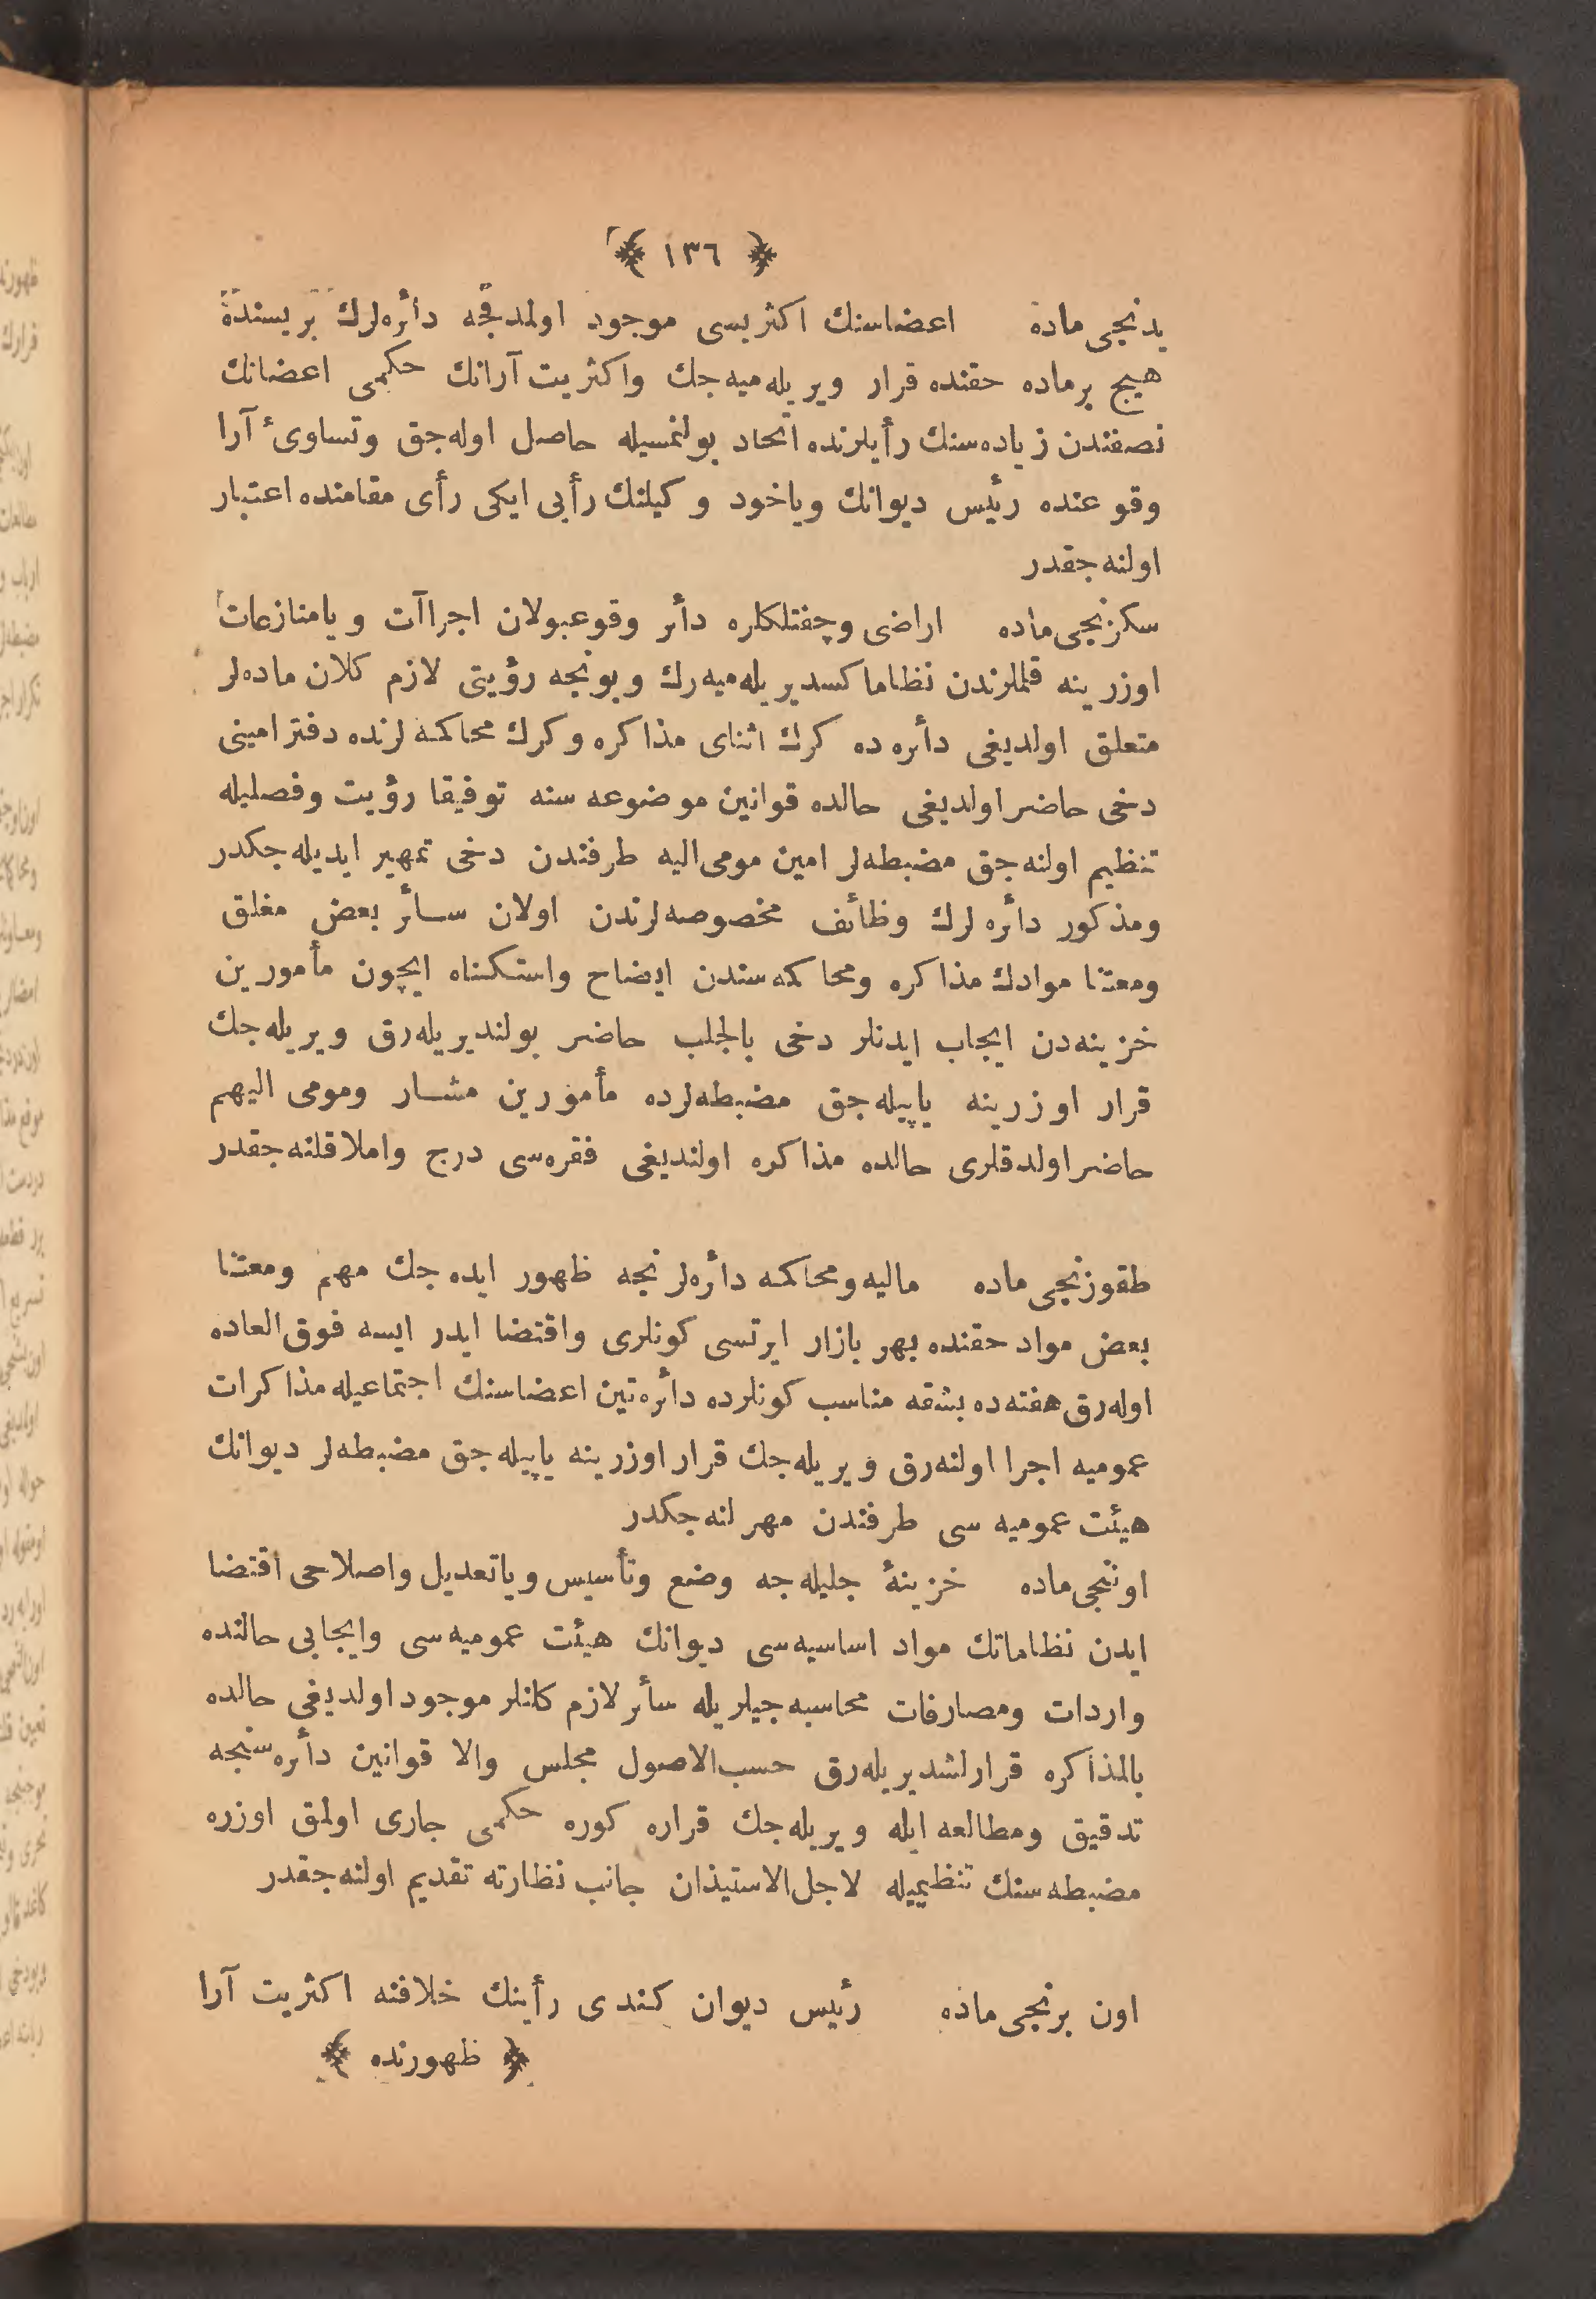 ﴿ ١٣٦ ﴾
يدنجی ماده اعضاسنك اكثريسی موجود اولمدقجه دائره‌لرك بريسنده
هيچ برماده حقنده قرار ويريله‌ميه‌جك واكثريت آرانك حكمی اعضانك
نصفندن زياده‌سنك رأيلرنده اتحاد بولنمسيله حاصل اوله‌جق وتساویٔ آرا
وقوعنده رئيس ديوانك وياخود وكيلنك رأيی ايكی رأی مقامنده اعتبار
اولنه‌جقدر
سكزنجی ماده اراضی وچفتلكلره دائر وقوعبولان اجراآت ويامنازعات
اوزرينه قلملرندن نظاما كسديريله‌ميه‌رك وبونجه رؤيتی لازم كلان ماده‌لر
متعلق اولديغی دائره‌ده كرك اثنای مذاكره وكرك محاكمه‌لرنده دفتر امينی
دخی حاضر اولديغی حالده قوانين موضوعه‌سنه توفيقا رؤيت وفصليله
تنظيم اولنه‌جق مضبطه‌لر امين مومی‌اليه طرفندن دخی تمهير ايديله‌جكدر
ومذكور دائره‌لرك وظائف مخصوصه‌لرندن اولان سائر بعض مغلق
ومعتنا موادك مذاكره ومحاكمه‌سندن ايضاح واستكناه ايچون مأمورين
خزينه‌دن ايجاب ايدنلر دخی بالجلب حاضر بولنديريله‌رق ويريله‌جك
قرار اوزرينه ياپيله‌جق مضبطه‌لرده مأمورين مشار ومومی اليهم
حاضر اولدقلری حالده مذاكره اولنديغی فقره‌سی درج واملا قلنه‌جقدر
طقوزنجی ماده ماليه ومحاكمه دائره‌لرنجه ظهور ايده‌جك مهم ومعتنا
بعض مواد حقنده بهر بازار ايرتسی كونلری واقتضا ايدر ايسه فوق‌العاده
اوله‌رق هفته‌ده بشقه مناسب كونلرده دائره‌تين اعضاسنك اجتماعيله مذاكرات
عموميه اجرا اولنه‌رق ويريله‌جك قرار اوزرينه ياپيله‌جق مضبطه‌لر ديوانك
هيئت عموميه‌سی طرفندن مهرلنه‌جكدر
اوننجی ماده خزينهٔ جليله‌جه وضع وتأسيس وياتعديل واصلاحی اقتضا
ايدن نظاماتك مواد اساسيه‌سی ديوانك هيئت عموميه‌سی وايجابی حالنده
واردات ومصارفات محاسبه‌جيلريله سائر لازم كلنلر موجود اولديغی حالده
بالمذاكره قرارلشديريله‌رق حسب‌الاصول مجلس والا قوانين دائره‌سنجه
تدقيق ومطالعه ايله ويريله‌جك قراره كوره حكمی جاری اولمق اوزره
مضبطه‌سنك تنظيميله لاجل‌الاستيذان جانب نظارته تقديم اولنه‌جقدر
اون برنجی ماده رئيس ديوان كندی رأينك خلافنه اكثريت آرا
﴿ ظهورنده ﴾